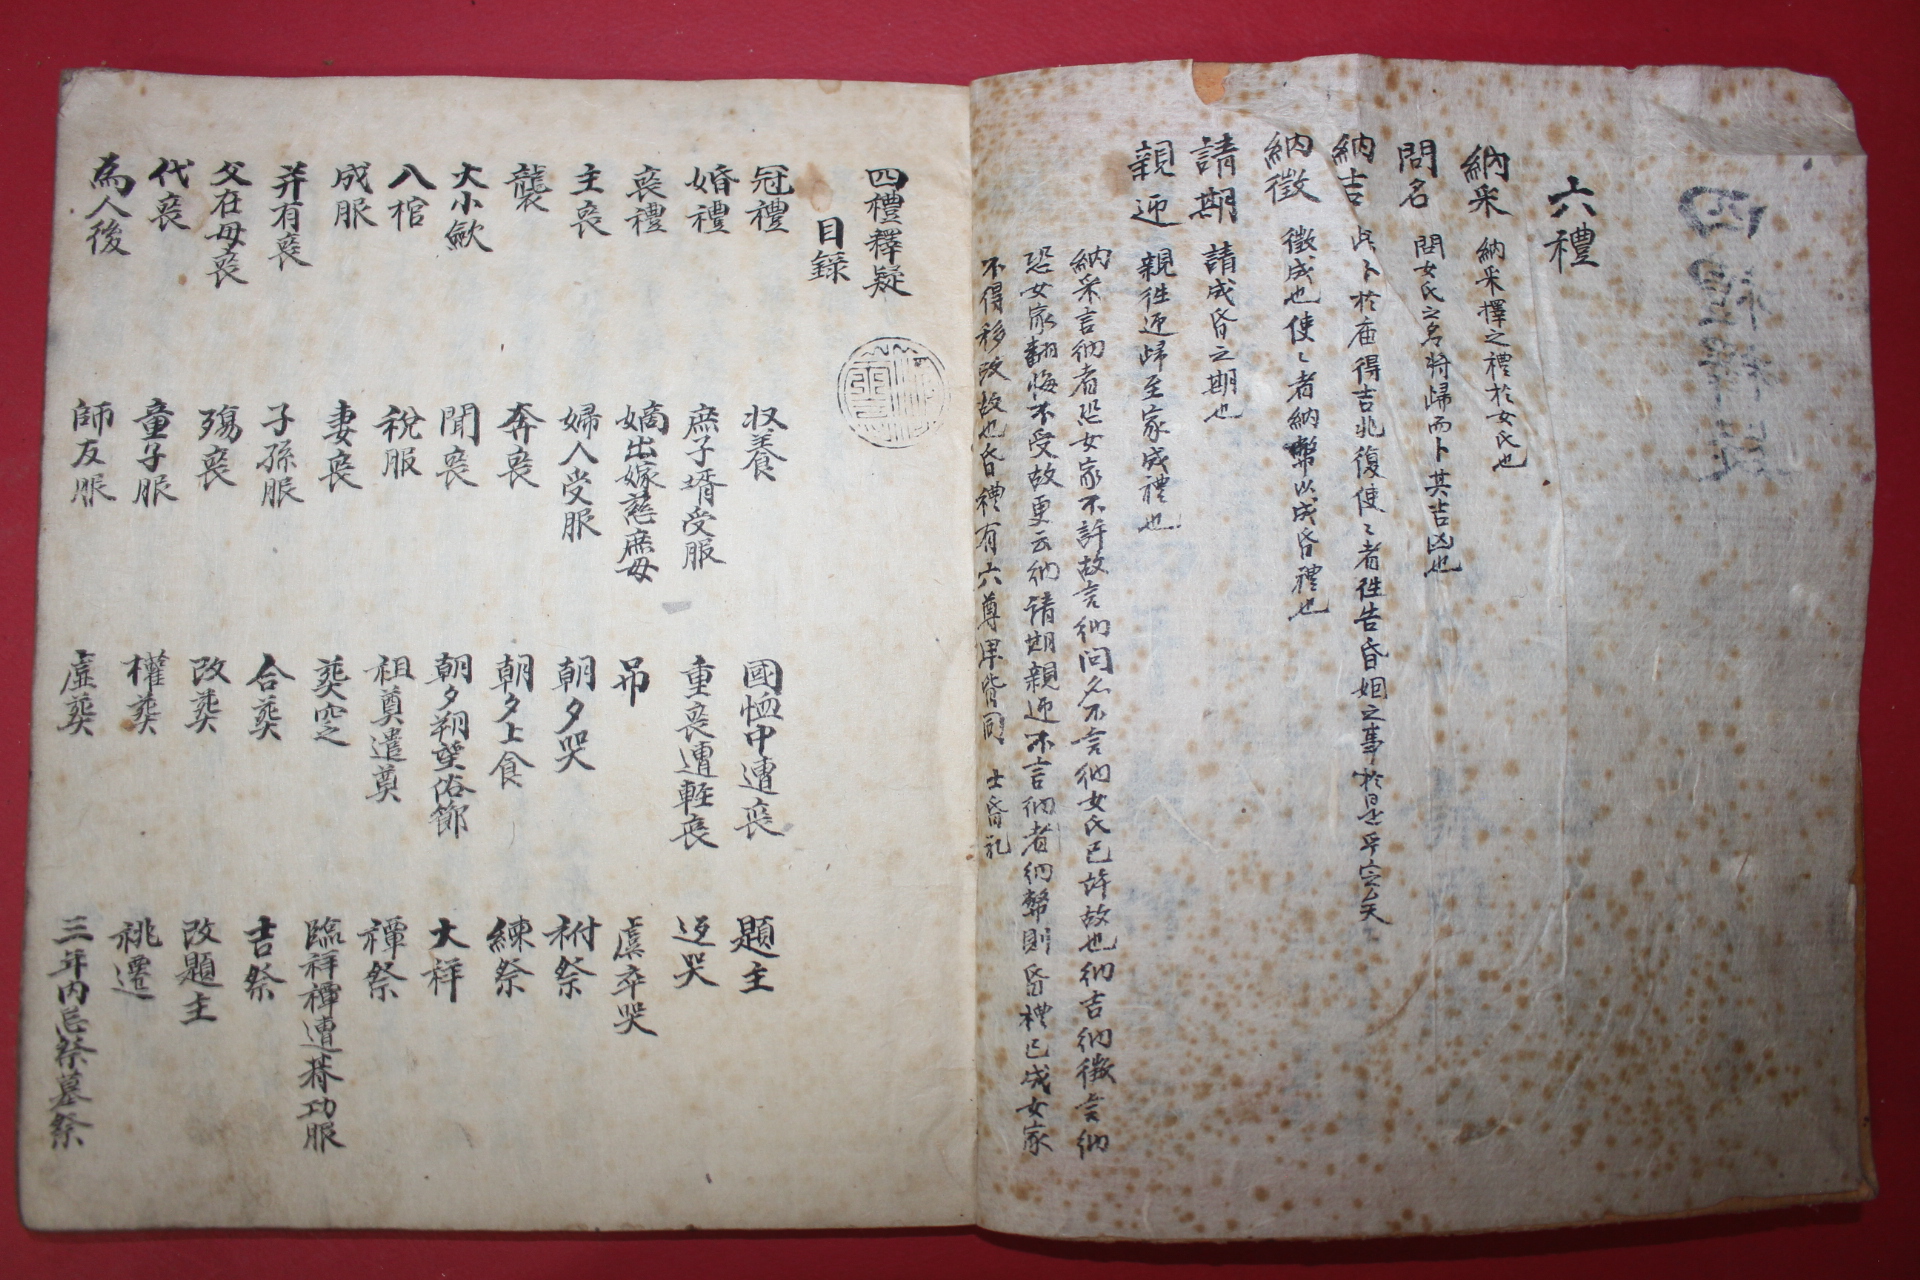 六禮
納采 納采擇之禮於女氏也
問名 問女氏之名將歸而卜其吉凶也
納吉 此卜於庙得吉兆復使〻者徃告昏姻之事於是乎定矣
納徵 徵成也使〻者納幣以成昏禮也
請期 請成昏之期也
親迎 親徃迎歸至家成禮也
納采言納者恐女家不許故言納问名不言納女氏已許故也納吉納徵言納
恐女家翻悔不受故更云納請期親迎不言納者納幣則昏禮已成女家
不得移改故也昏禮有六尊卑皆同 士昏礼
四禮釋疑
目録
冠禮 収養 國恤中遭喪 題主
婚禮 庶子壻受服 重喪遭輕喪 返哭
喪禮 嫡出嫁慈庶母 吊 虞卒哭
主喪 婦人受服 朝夕哭 祔祭
襲 奔喪 朝夕上食 練祭
大小斂 聞喪 朝夕朔望俗節 大祥
入棺 稅服 祖奠遣奠 禫祭
成服 妻喪 葬窆 臨祥禫遭朞功服
并有喪 子孫服 合葬 吉祭
父在母喪 殤喪 改葬 改題主
代喪 童子服 權葬 祧遷
為人後 師友服 虛葬 三年內忌祭墓祭